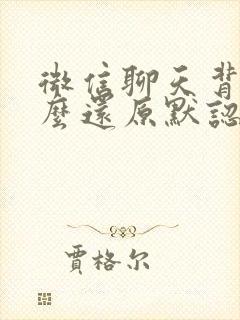 微信聊天背
麼還原默認
賈格尔